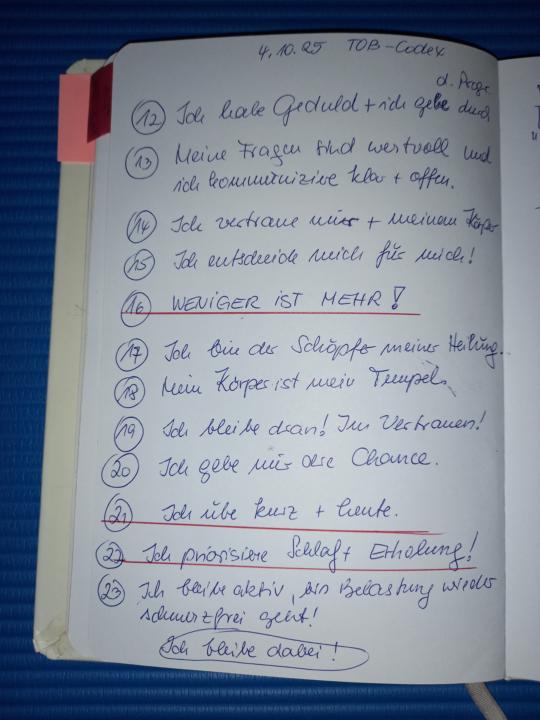 4.10.25 TOB-Codex
(12) Ich habe Geduld + ich gebe durch
(13) Meine Fragen sind wertvoll und
ich kommuniziere klar + offen.
(14) Ich vertraue mir + meinem Körper
(15) Ich entscheide mich für mich!
(16) WENIGER IST MEHR!
(17) Ich bin der Schöpfer meiner Heilung.
(18) Mein Körper ist mein Tempel.
(19) Ich bleibe dran! Im Vertrauen!
(20) Ich gebe mir die Chance.
(21) Ich übe kurz + heute.
(22) Ich priorisiere Schlaf + Erholung!
(23) Ich bleibe aktiv, bis Belastung wieder
schmerzfrei geht!
Ich bleibe dabei!